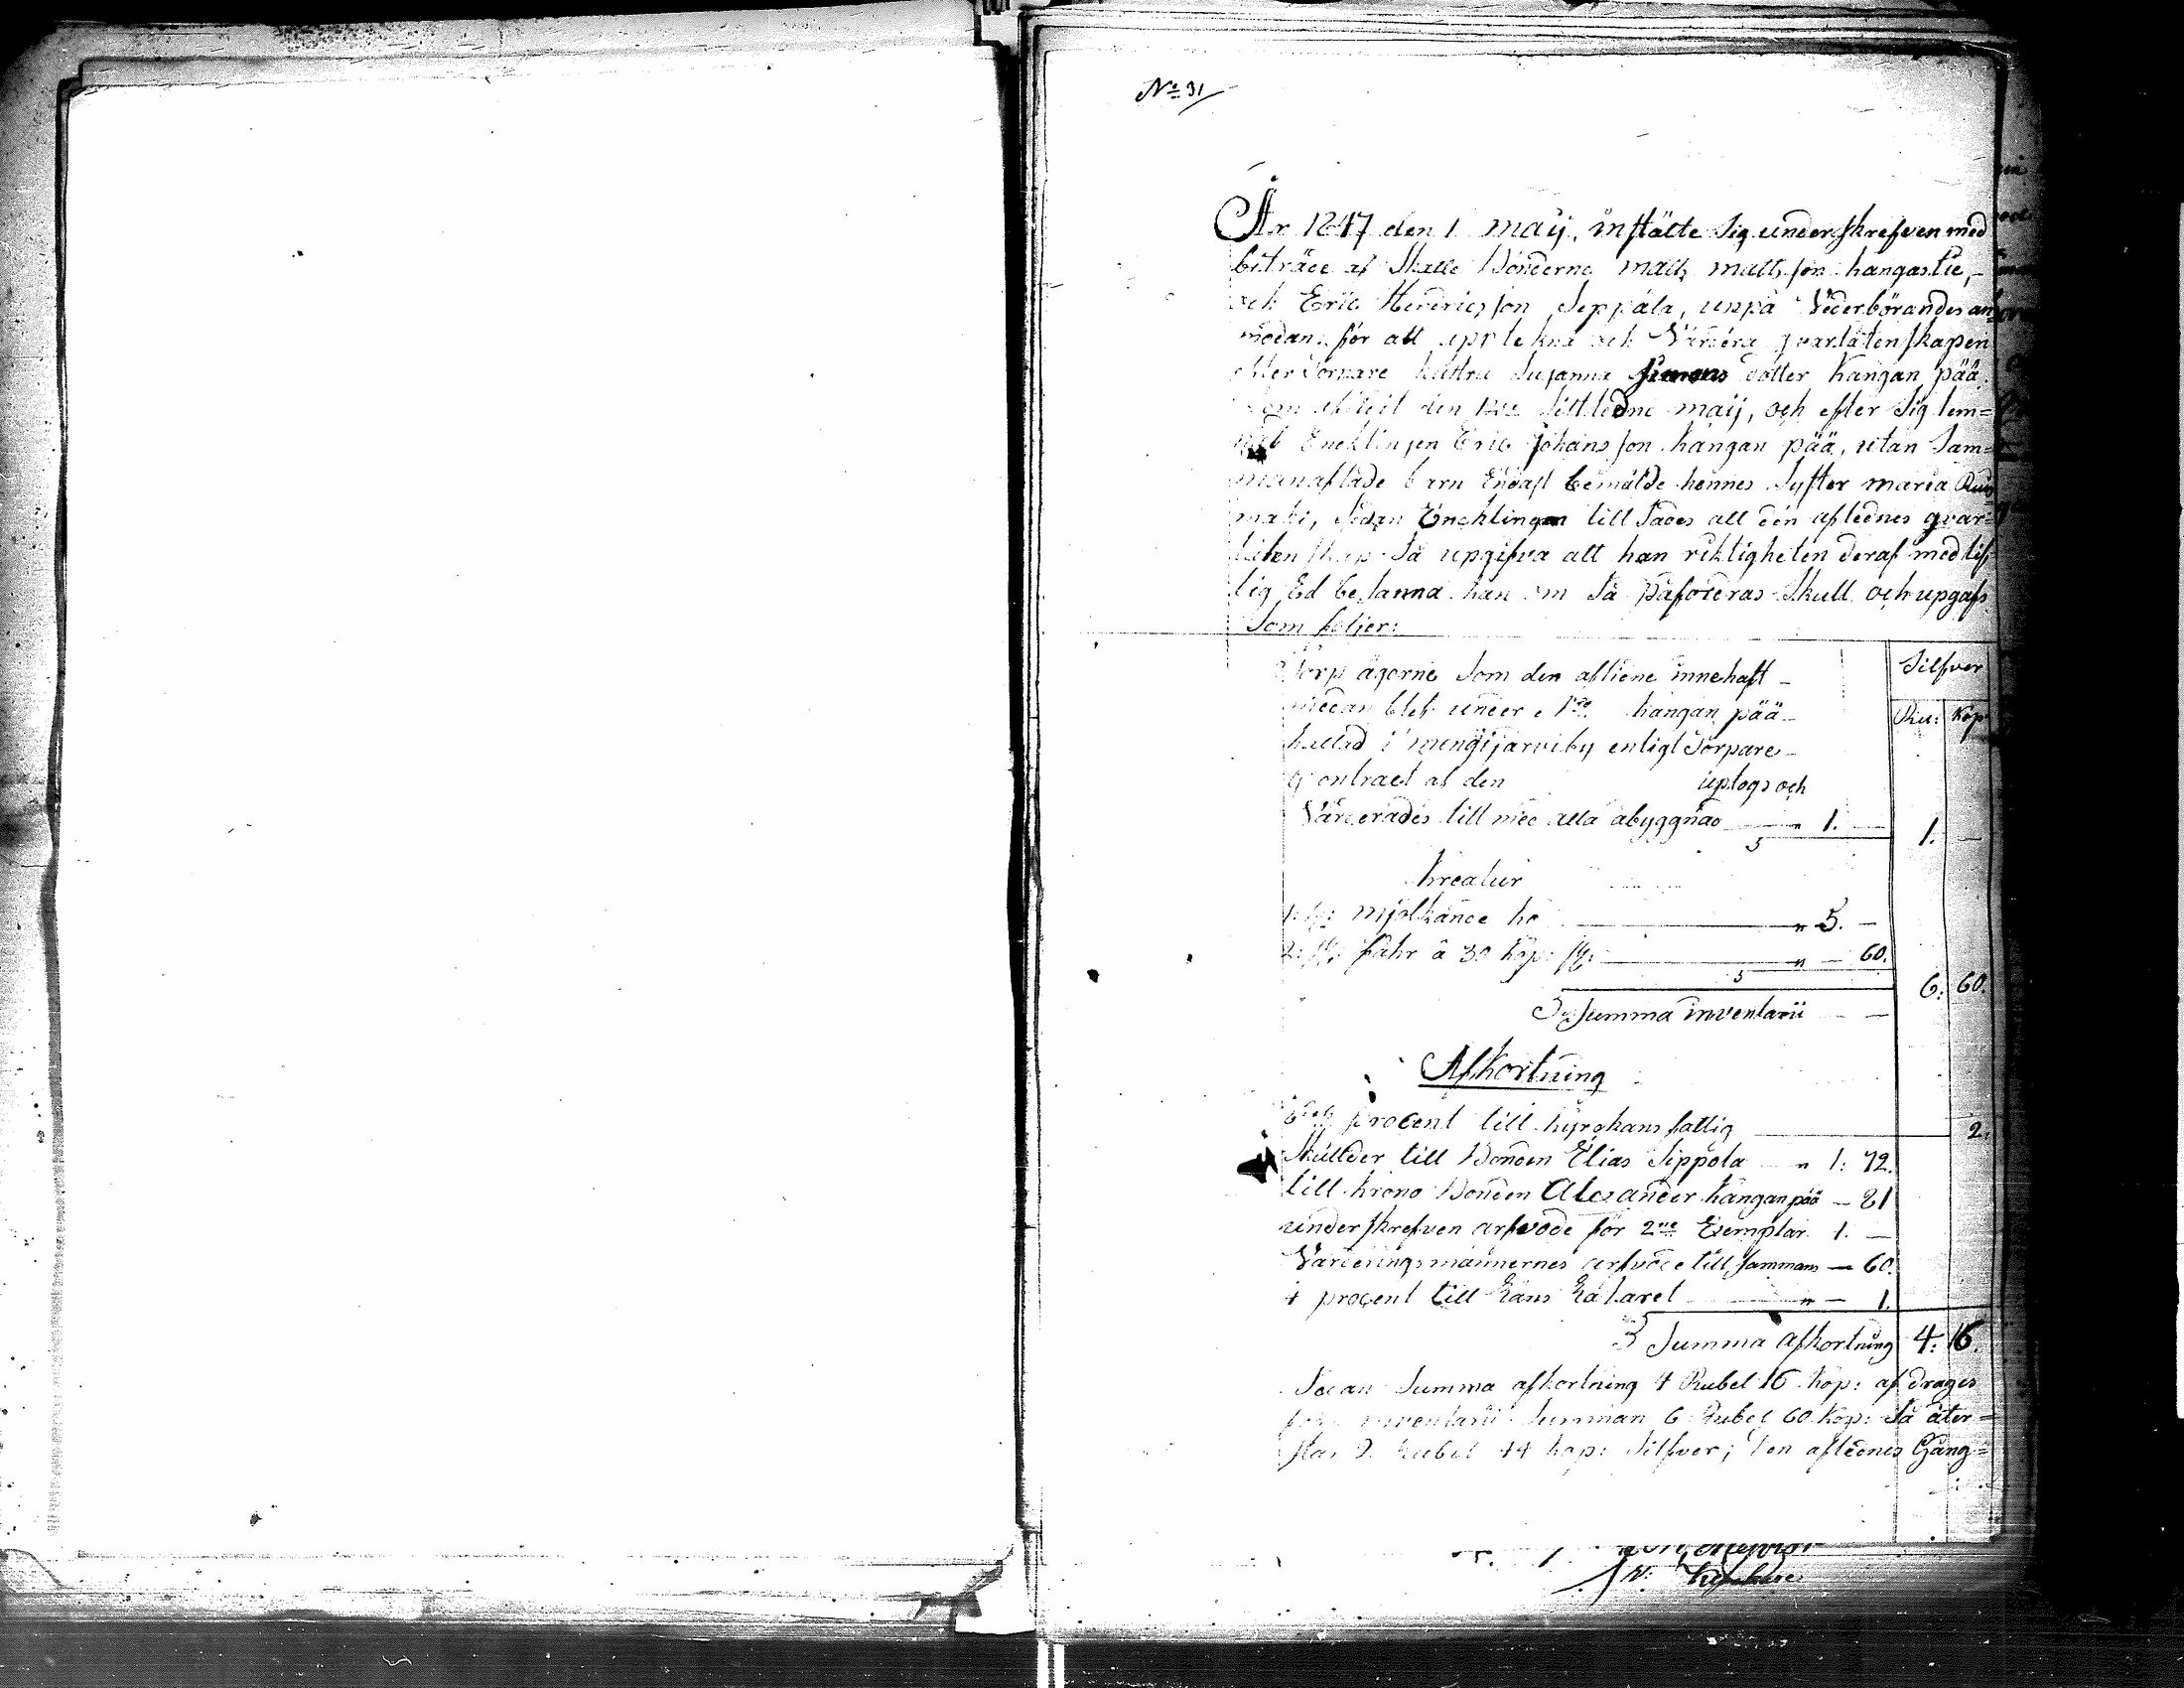 No 31
År 1847 den 1 maij, instälte Sig underskrefven med
biträde af Skatte Bönderne matts mattsson hangastie,
och Eric Hendricsson Seppälä, uppå Vederbörandes an=
modan, för att uppteckna och Värdera qvarlåtenskapen
efter Torpare hustru Susanna Simons dotter Kangan pää
Som afledit den sittledne maij, och efter Sig lem=
nat Encklingen Eric Johansson Kangan pää, utan Sam=
manaflade barn Endast bemälde hennes Syster maria
maki, Sedan Encklingen till Sades all den aflednes qvar=
låtenskap Så upgifva att han riktigheten deraf med lif
lig Ed besanna kan om Så påfoderas Skull och upgafs
Som följer:
Torp ägorne Som den afledne innehaft
Silfver
medan blef under Kangan pää
Ru: Kop
kallad i mengijärviby enligt Torpare
Contract af den uptogs och
Värderades till med alla åbyggnad " 1. — 1. —
Kreatur
1: st: mjölkande ko " 5. —
2: st: fåhr a 30 kop: st: " — 60. 6: 60.
Summa inventarii
Afkortning
procent till kyrckans fattig 2.
Skullder till Bonden Elias Sippola " 1: 72.
till krono Bonden Alexander Kangan pää — 81
underskrefven arfvode för 2ne Exemplar 1. —
Värderingsmännernes arfvode tillsammans — 60.
procent till " — 1.
Summa afkortning 4: 16.
Sedan Summa afkortning 4 Rubel 16 kop: af drages
från inventarii Summan 6 Rubel 60 kop: Så åter=
står 2 Rubel 44 kop: Silfver; den aflednes Gång=